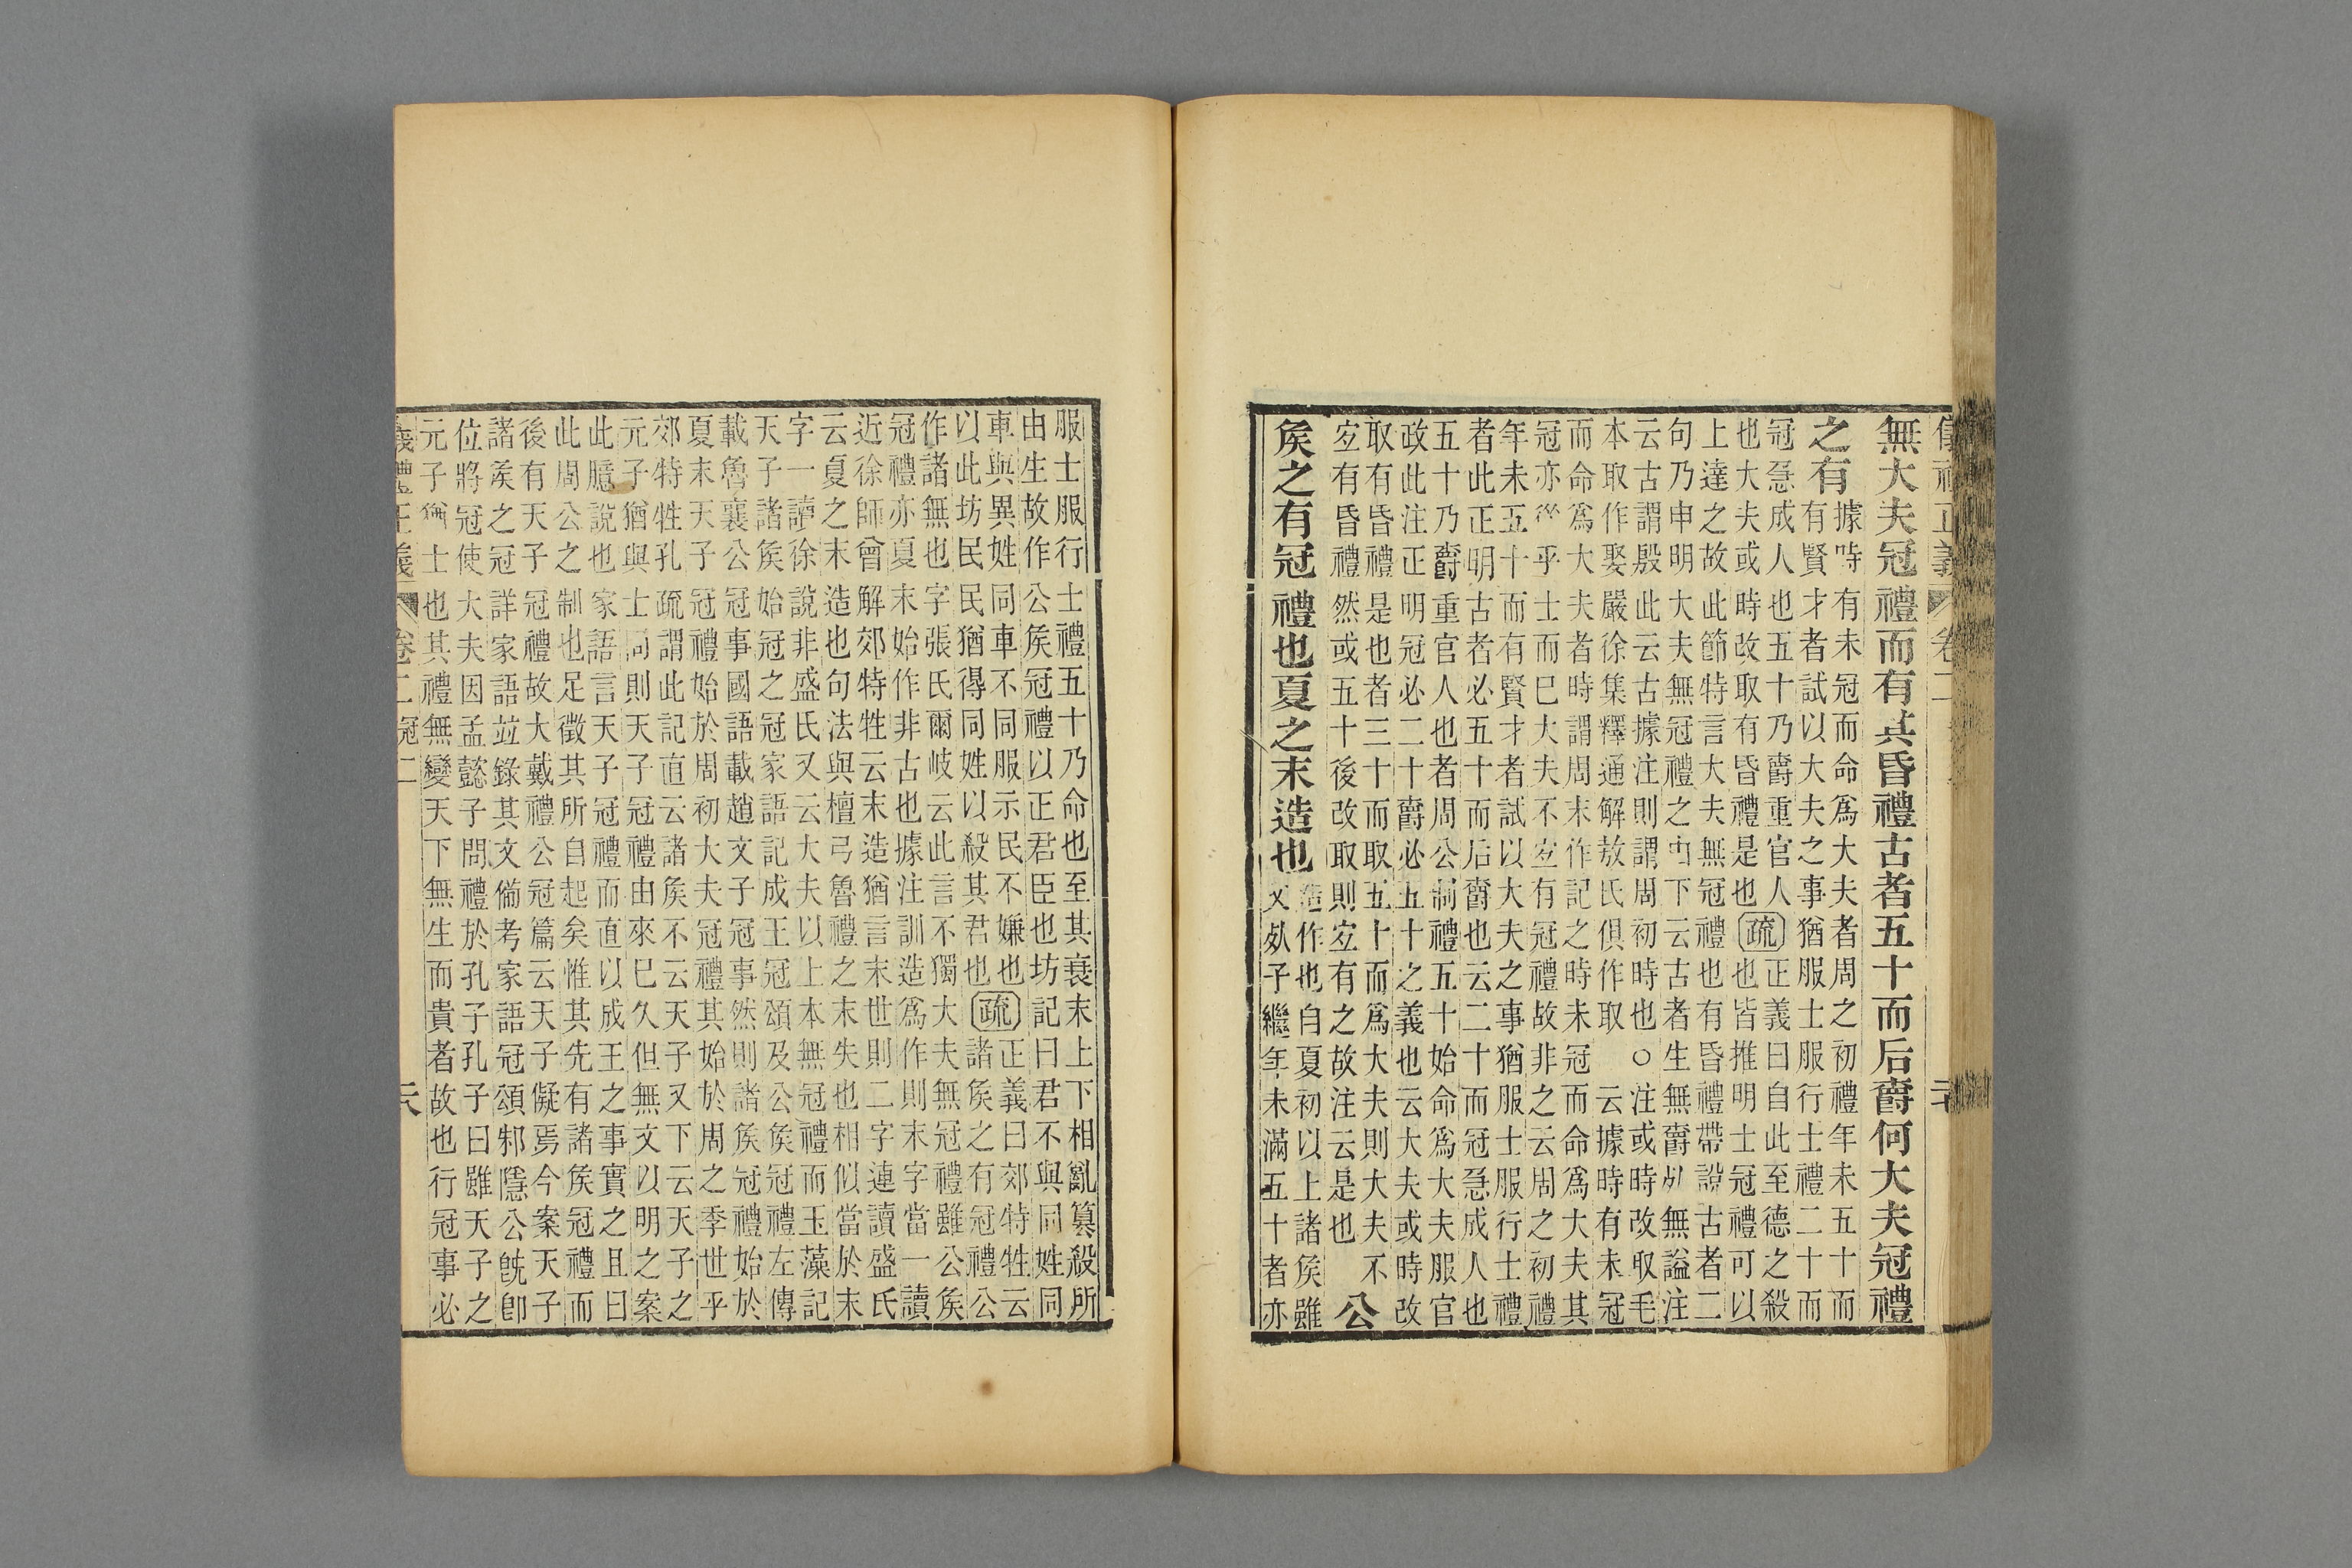 儀禮正義 卷二
無大夫冠禮而有其昏禮古者五十而后爵何大夫冠禮
之有
據時有未冠而命爲大夫者周之初禮年未五十而
有賢才者試以大夫之事猶服士服行士禮二十而
冠急成人也五十乃爵重官人也大夫或時改取有昏禮是也疏正義曰自此至德之殺
也皆推明士冠禮可以
上達之故此節特言大夫無冠禮也有昏禮帶說古者二
句乃申明大夫無冠禮之由下云古者生無爵死無謚注
云古謂殷此云古據注則謂周初時也○注或時改取毛
本取作娶嚴徐集釋通解敖氏俱作取 云據時有未冠
而命爲大夫者時謂周末作記之時未冠而命爲大夫其
冠亦從乎士而已大夫不宜有冠禮故非之云周之初禮
年未五十而有賢才者試以大夫之事猶服士服行士禮
者此正明古者必五十而后爵也云二十而冠急成人也
五十乃爵重官人也者周公制禮五十始命爲大夫服官
政此注正明冠必二十爵必五十之義也云大夫或時改
取有昏禮是也者三十而取五十而爲大夫則大夫不
宜有昏禮然或五十後改取則宜有之故注云是也
公
矦之有冠禮也夏之末造也
造作也自夏初以上諸矦雖
父死子繼年未滿五十者亦
服士服行士禮五十乃命也至其衰末上下相亂篡殺所
由生故作公矦冠禮以正君臣也坊記曰君不與同姓同
車與異姓同車不同服示民不嫌也
以此坊民民猶得同姓以殺其君也疏正義曰郊特牲云
諸矦之有冠禮公
作諸無也字張氏爾岐云此言不獨大夫無冠禮雖公矦
冠禮亦夏末始作非古也據注訓造爲作則末字當一讀
近徐師曾解郊特牲云末造猶言末世則二字連讀盛氏
云夏之末造也句法與檀弓魯禮之末失也相似當於末
字一讀徐說非盛氏又云大夫以上本無冠禮而玉藻記
天子諸矦始冠之冠家語記成王冠頌及公矦冠禮左傳
載魯襄公冠事國語載趙文子冠事然則諸矦冠禮始於
夏末天子冠禮始於周初大夫冠禮其始於周之季世乎
郊特牲孔疏謂此記直云諸矦不云天子又下云天子之
元子猶與士同則天子冠禮由來已久但無文以明之案
此臆說也家語言天子冠禮而直以成王之事實之且曰
此周公之制也足徵其所自起矣惟其先有諸矦冠禮而
後有天子冠禮故大戴禮公冠篇云天子儗焉今案天子
諸矦之冠詳家語竝錄其文備考家語冠頌邾隱公旣卽
位將冠使大夫因孟懿子問禮於孔子孔子曰雖天子之
元子猶士也其禮無變天下無生而貴者故也行冠事必
儀禮正義 卷二 冠二